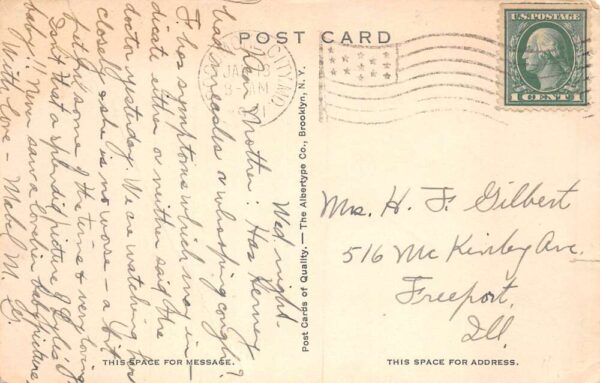 POST CARD
U.S. POSTAGE
1 CENT 1
CITY, MO.
JAN
8 AM
Wed. night-
Dear Mother: Has Henney
had measles or whooping cough?
F. has symptoms which may in-
dicate either or neither said the
doctor yesterday. We are watching her
closely & she is no worse - a bit
some of the time & very loving
Isn't that a splendid picture of
baby!! Never saw a lovelier baby picture.
With Love - Mabel M.
Mrs. H. F. Gilbert
516 McKinley Ave.
Freeport,
Ill.
Post Cards of Quality. — The Albertype Co., Brooklyn, N. Y.
THIS SPACE FOR MESSAGE.
THIS SPACE FOR ADDRESS.